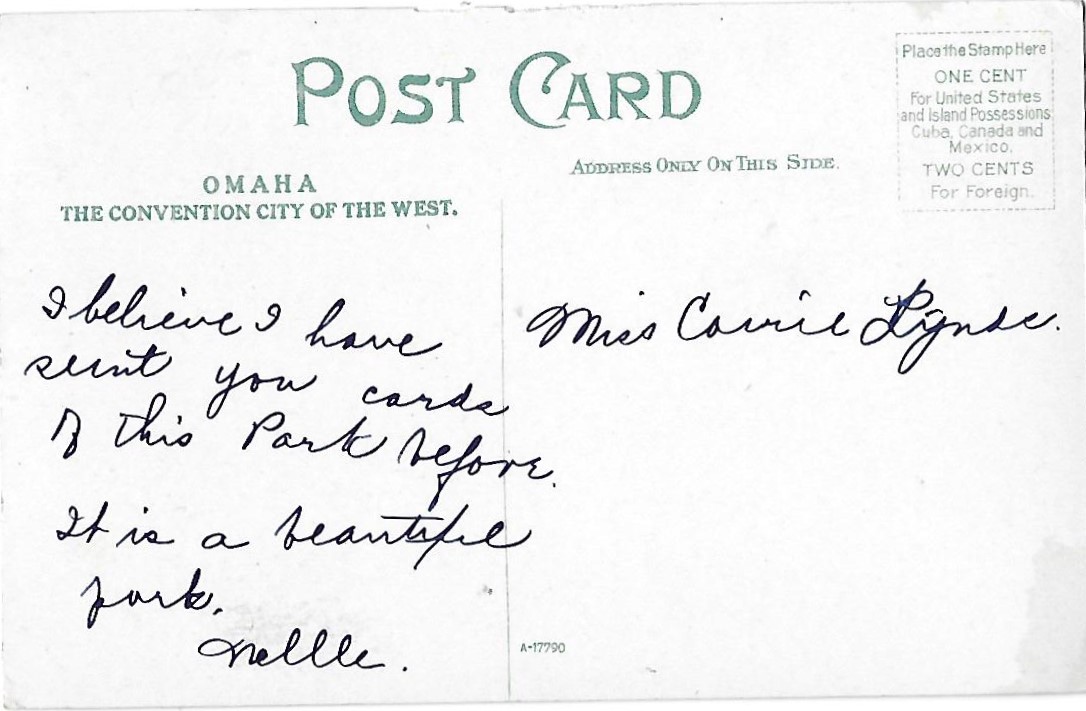 POST CARD
Place the Stamp Here
ONE CENT
For United States
and Island Possessions,
Cuba, Canada and
Mexico.
TWO CENTS
For Foreign.
OMAHA
THE CONVENTION CITY OF THE WEST.
ADDRESS ONLY ON THIS SIDE.
I believe I have
sent you cards
of this Park before.
It is a beautiful
park.
Nellie.
Miss Carrie Lynde.
A-17790